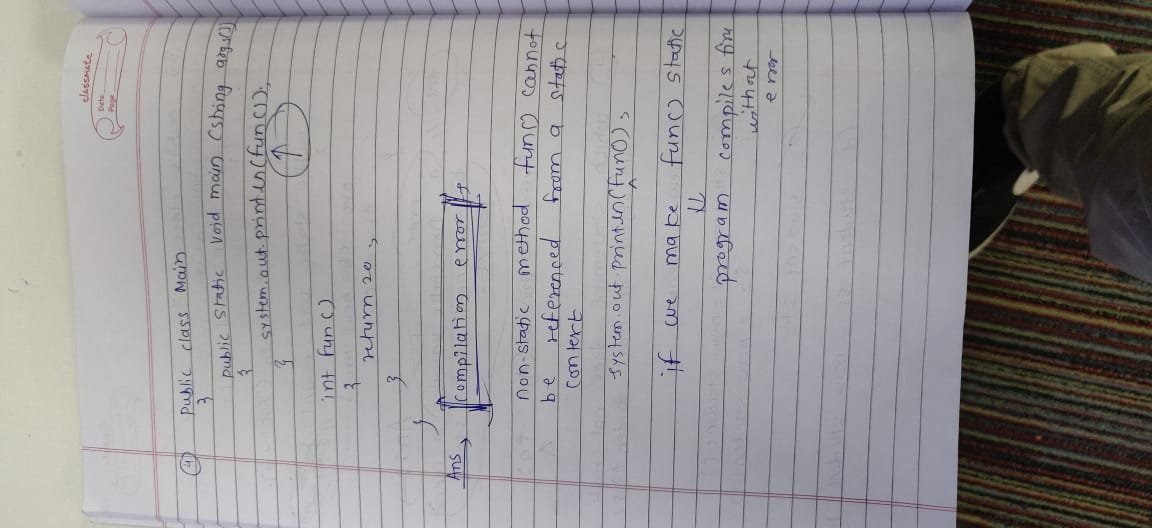 classmate
Date
Page
(4) Public class Main
{
public static void main (string args[])
{
system.out.println(fun());
}
int fun()
{
return 20;
}
}
Ans → Compilation error
non-static method fun() cannot
be referenced from a static
context
system.out.println(fun());
^
if we make func() static
⇓
program compiles fine
without
error